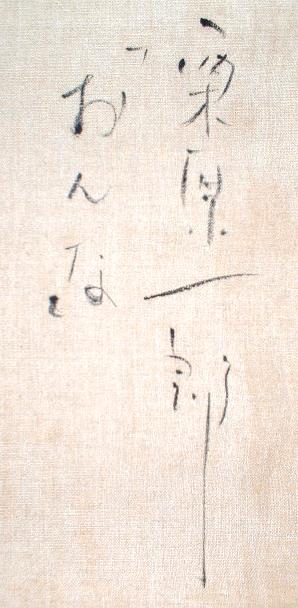 栗原一郎
「おんな」